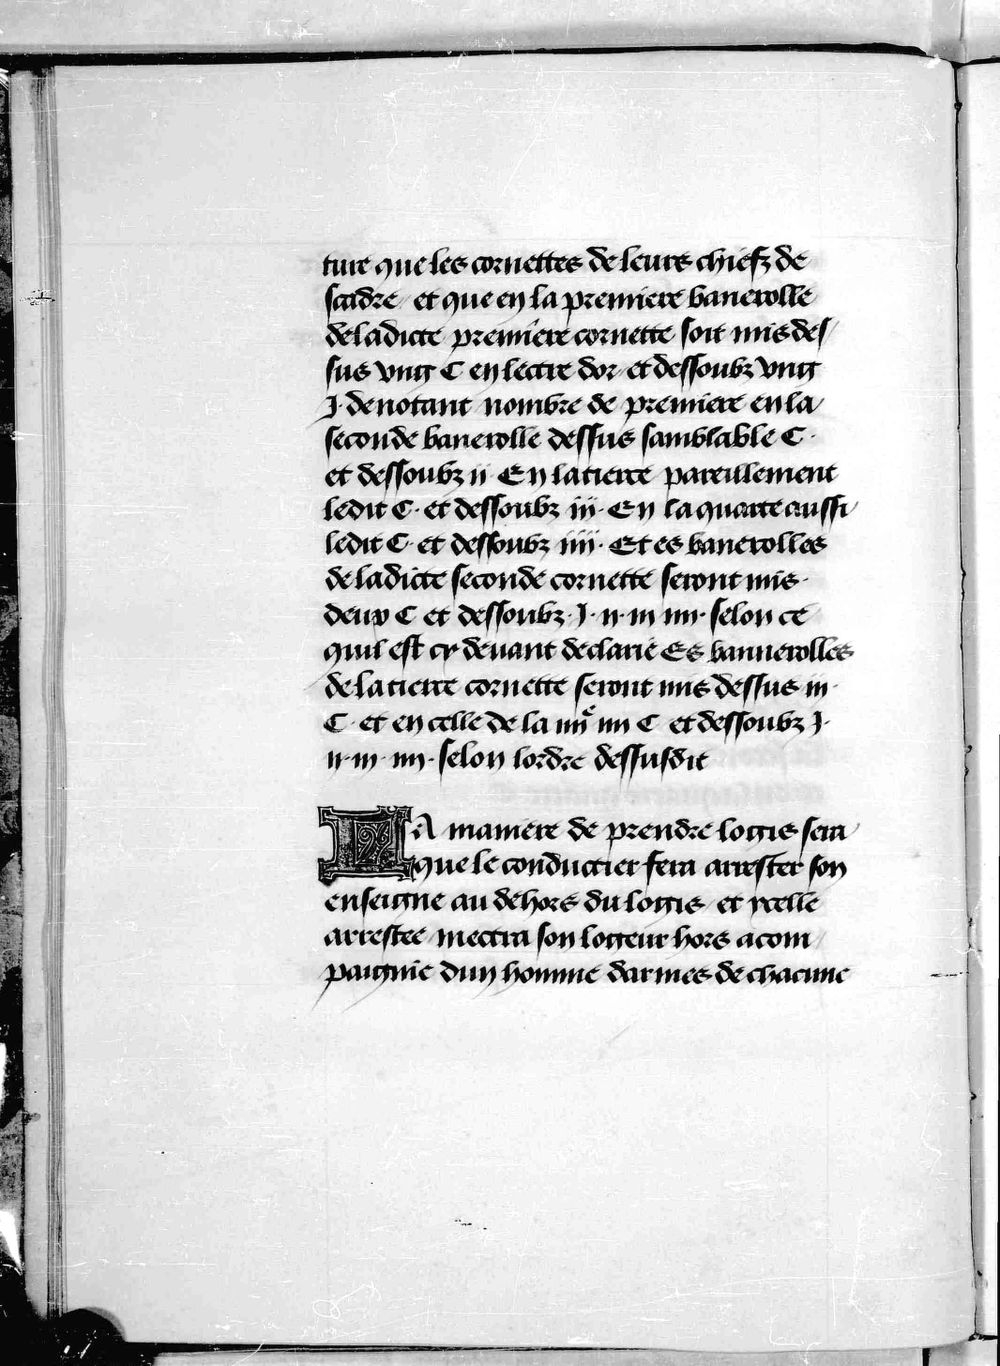 ture que les cornettes de leurs chiefz de
scadre et que en la premiere banerolle
de ladicte premiere cornette soit mis des/
sus vng C en lectre dor et dessoubz vng
J· denotant nombre de premiere en la/
seconde banerolle dessus samblable C·
et dessoubz ii· En la tierce pareillement
ledit C· et dessoubz iii· En la quarte aussi
ledit C· et dessoubz iiii· Et es banerolles
de ladicte seconde cornette seront mis·
deux C et dessoubz·J· ii· iii iiii· selon ce
quil est cy devant declarie Es bannerolles
de la tierce cornette seront mis dessus iii·
C· et en celle de la iiiie iiii C et dessoubz J·
ii· iii· iiii· selon lordre dessusdit
LA maniere de prendre logis sera
que le conductier fera arrester son
enseigne au dehors du logis et ycelle
arrestee mectra son logeur hors acom/
paignie dun homme darmes de chacune